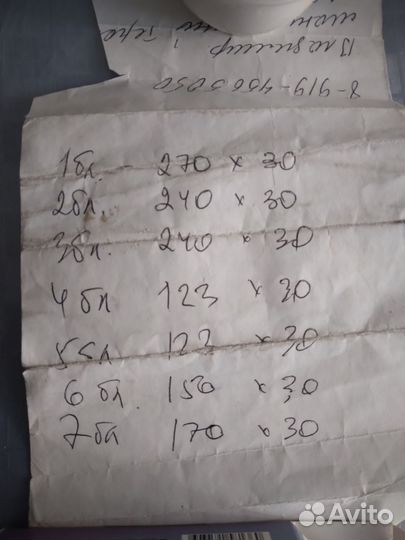 Владимир
8-919-4565050
1 бл. - 270 × 30
2 бл. 240 × 30
3 бл. 240 × 30
4 бл 123 × 30
5 бл 123 × 30
6 бл. 150 × 30
7 бл 170 × 30
Avito